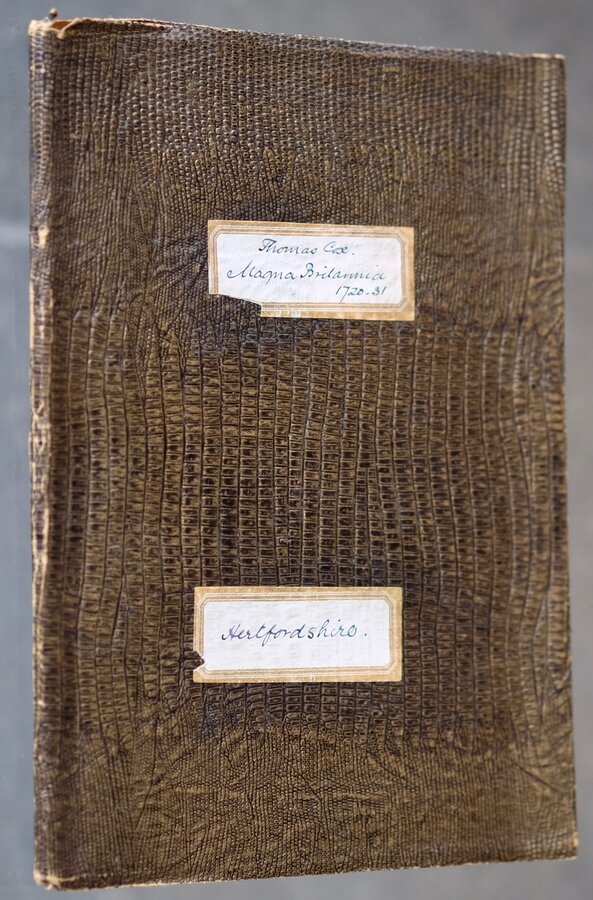 Thomas Cox.
Magna Britannia
1720-31
Hertfordshire.